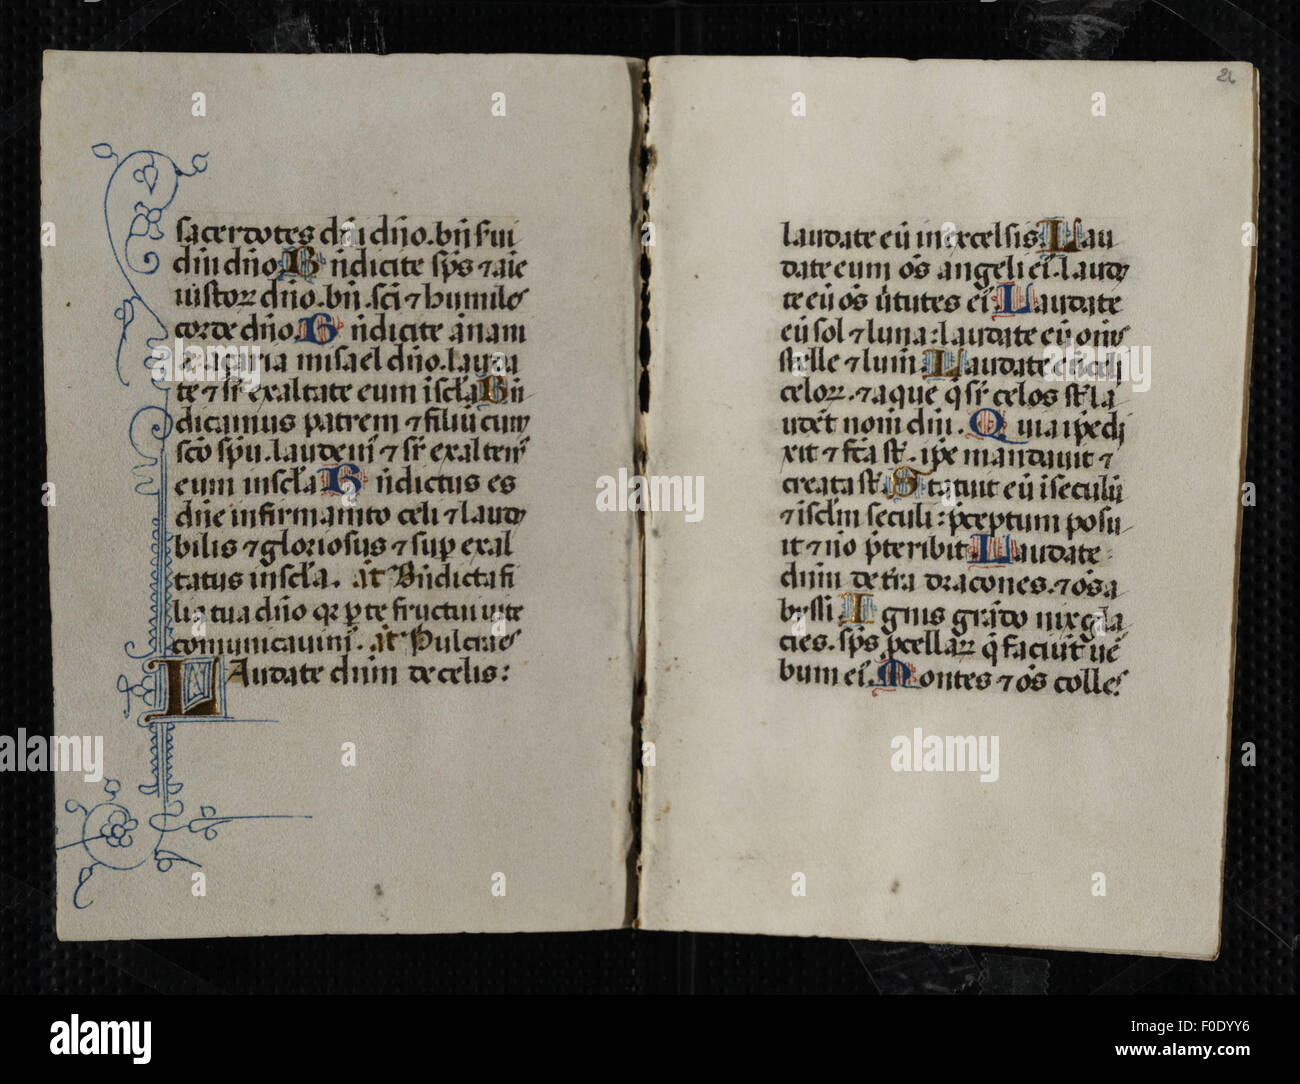 sacerdotes dñi dño. bñ s̃ui
dñi dño. Bñdicite sp̃s ⁊ aĩe
iustoꝝ dño. bñ. sc̃i ⁊ humiles
corde dño. Bñdicite ãnani
açaria misael dño. lauda
te ⁊ sr̃ exaltate eum ĩ scl̃a Bñ
dicamus patrem ⁊ filiũ cum
sc̃o sp̃u. laudem̃ ⁊ sr̃ exaltem̃
eum in scl̃a Bñdictus es
dñe in firmamẽto celi ⁊ laud
bilis ⁊ gloriosus ⁊ suꝑ exal
tatus in scl̃a. añ Bñdicta fi
lia tua dño qꝛ ꝑ te fructũ uite
comunicauim̃. añ Pulcra es
LAudate dñm de celis:
26
laudate eũ in excelsis. Lau
date eum oẽs angeli ei. laud
te eũ oẽs ũtutes ei. Laudate
eũ sol ⁊ luna: laudate eũ om̃s
stelle ⁊ lum̃. Laudate eũ celi
celoꝝ. ⁊ aque q̃ sr̃ celos st̃ la
udẽt nom̃ dñi. Quia ip̃e di
xit ⁊ fc̃a st̃. ip̃e mandauit ⁊
creata st̃. Statuit eũ ĩ seculũ
⁊ ĩ scl̃m seculi: p̃ceptum posu
it ⁊ nõ p̃teribit. Laudate
dñm de t̃ra dracones. ⁊ oẽs a
byssi. Ignis grãdo nix gla
cies. sp̃s ꝓcellaꝝ q̃ faciũt uẽ
bum ei. Montes ⁊ oẽs colles
alamy
alamy
alamy
Image ID: F0DYY6
www.alamy.com